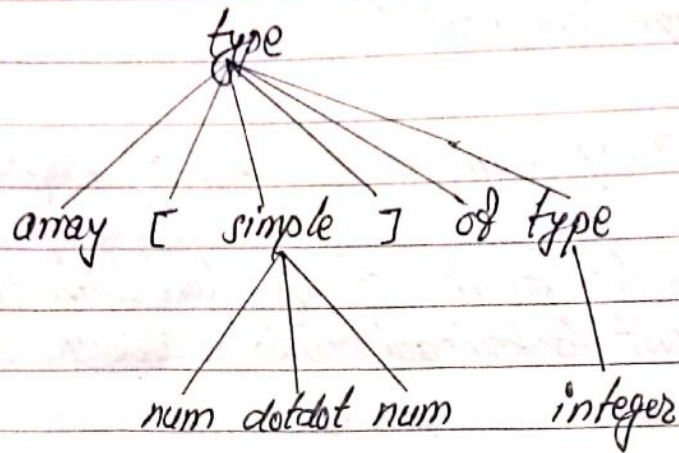 type
array [ simple ] of type
num dotdot num integer